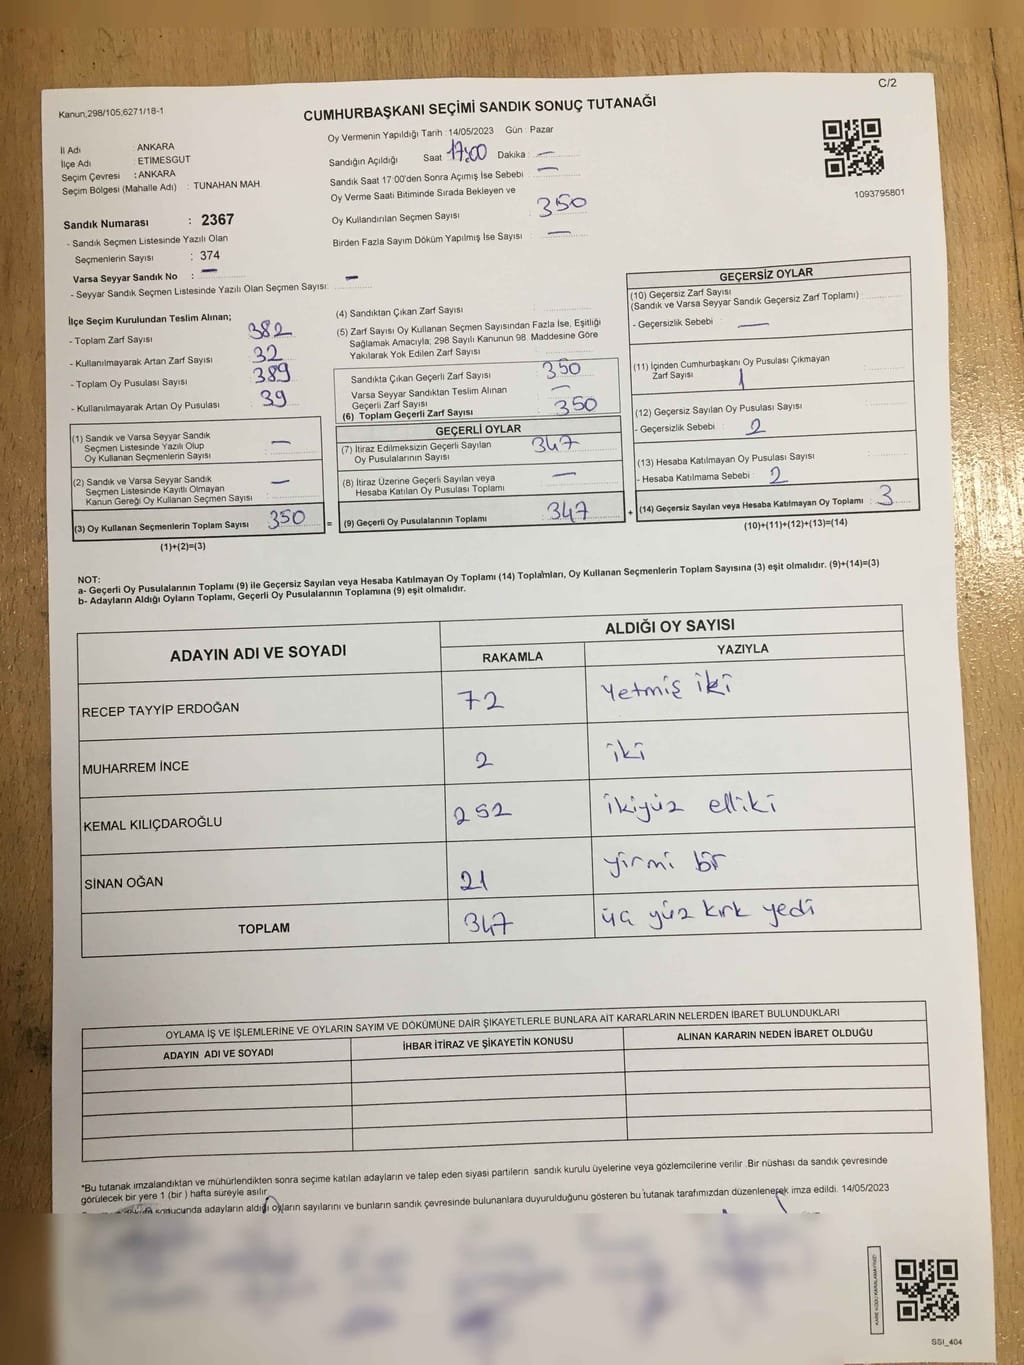 C/2
Kanun;298/105;6271/18-1
CUMHURBAŞKANI SEÇİMİ SANDIK SONUÇ TUTANAĞI
İl Adı : ANKARA
İlçe Adı : ETIMESGUT
Seçim Çevresi : ANKARA
Seçim Bölgesi (Mahalle Adı) : TUNAHAN MAH.
Oy Vermenin Yapıldığı Tarih : 14/05/2023 Gün : Pazar
Sandığın Açıldığı Saat 17:00 Dakika : —
Sandık Saat 17:00'den Sonra Açımış İse Sebebi : —
Oy Verme Saati Bitiminde Sırada Bekleyen ve
Oy Kullandırılan Seçmen Sayısı : 350
Birden Fazla Sayım Döküm Yapılmış İse Sayısı : —
1093795801
Sandık Numarası : 2367
- Sandık Seçmen Listesinde Yazılı Olan
Seçmenlerin Sayısı : 374
Varsa Seyyar Sandık No : —
- Seyyar Sandık Seçmen Listesinde Yazılı Olan Seçmen Sayısı: —
İlçe Seçim Kurulundan Teslim Alınan;
- Toplam Zarf Sayısı : 382
- Kullanılmayarak Artan Zarf Sayısı : 32
- Toplam Oy Pusulası Sayısı : 389
- Kullanılmayarak Artan Oy Pusulası : 39
(1) Sandık ve Varsa Seyyar Sandık
Seçmen Listesinde Yazılı Olup
Oy Kullanan Seçmenlerin Sayısı : —
(2) Sandık ve Varsa Seyyar Sandık
Seçmen Listesinde Kayıtlı Olmayan
Kanun Gereği Oy Kullanan Seçmen Sayısı : —
(3) Oy Kullanan Seçmenlerin Toplam Sayısı : 350 =
(1)+(2)=(3)
(4) Sandıktan Çıkan Zarf Sayısı :
(5) Zarf Sayısı Oy Kullanan Seçmen Sayısından Fazla İse, Eşitliği
Sağlamak Amacıyla; 298 Sayılı Kanunun 98. Maddesine Göre
Yakılarak Yok Edilen Zarf Sayısı :
Sandıkta Çıkan Geçerli Zarf Sayısı : 350
Varsa Seyyar Sandıktan Teslim Alınan
Geçerli Zarf Sayısı : —
(6) Toplam Geçerli Zarf Sayısı : 350
GEÇERLİ OYLAR
(7) İtiraz Edilmeksizin Geçerli Sayılan
Oy Pusulalarının Sayısı : 347
(8) İtiraz Üzerine Geçerli Sayılan veya
Hesaba Katılan Oy Pusulası Toplamı : —
(9) Geçerli Oy Pusulalarının Toplamı : 347 +
GEÇERSİZ OYLAR
(10) Geçersiz Zarf Sayısı
(Sandık ve Varsa Seyyar Sandık Geçersiz Zarf Toplamı) :
- Geçersizlik Sebebi : —
(11) İçinden Cumhurbaşkanı Oy Pusulası Çıkmayan
Zarf Sayısı : 1
(12) Geçersiz Sayılan Oy Pusulası Sayısı :
- Geçersizlik Sebebi : 2
(13) Hesaba Katılmayan Oy Pusulası Sayısı :
- Hesaba Katılmama Sebebi : 2
(14) Geçersiz Sayılan veya Hesaba Katılmayan Oy Toplamı : 3
(10)+(11)+(12)+(13)=(14)
NOT:
a- Geçerli Oy Pusulalarının Toplamı (9) ile Geçersiz Sayılan veya Hesaba Katılmayan Oy Toplamı (14) Toplamları, Oy Kullanan Seçmenlerin Toplam Sayısına (3) eşit olmalıdır. (9)+(14)=(3)
b- Adayların Aldığı Oyların Toplamı, Geçerli Oy Pusulalarının Toplamına (9) eşit olmalıdır.
ADAYIN ADI VE SOYADI ALDIĞI OY SAYISI
RAKAMLA YAZIYLA
RECEP TAYYİP ERDOĞAN 72 Yetmiş iki
MUHARREM İNCE 2 iki
KEMAL KILIÇDAROĞLU 252 ikiyüz elliki
SİNAN OĞAN 21 yirmi bir
TOPLAM 347 üç yüz kırk yedi
OYLAMA İŞ VE İŞLEMLERİNE VE OYLARIN SAYIM VE DÖKÜMÜNE DAİR ŞİKAYETLERLE BUNLARA AİT KARARLARIN NELERDEN İBARET BULUNDUKLARI
ADAYIN ADI VE SOYADI İHBAR İTİRAZ VE ŞİKAYETİN KONUSU ALINAN KARARIN NEDEN İBARET OLDUĞU
*Bu tutanak imzalandıktan ve mühürlendikten sonra seçime katılan adayların ve talep eden siyasi partilerin sandık kurulu üyelerine veya gözlemcilerine verilir .Bir nüshası da sandık çevresinde
görülecek bir yere 1 (bir ) hafta süreyle asılır.
sonucunda adayların aldığı oyların sayılarını ve bunların sandık çevresinde bulunanlara duyurulduğunu gösteren bu tutanak tarafımızdan düzenlenerek imza edildi. 14/05/2023
SSI_404